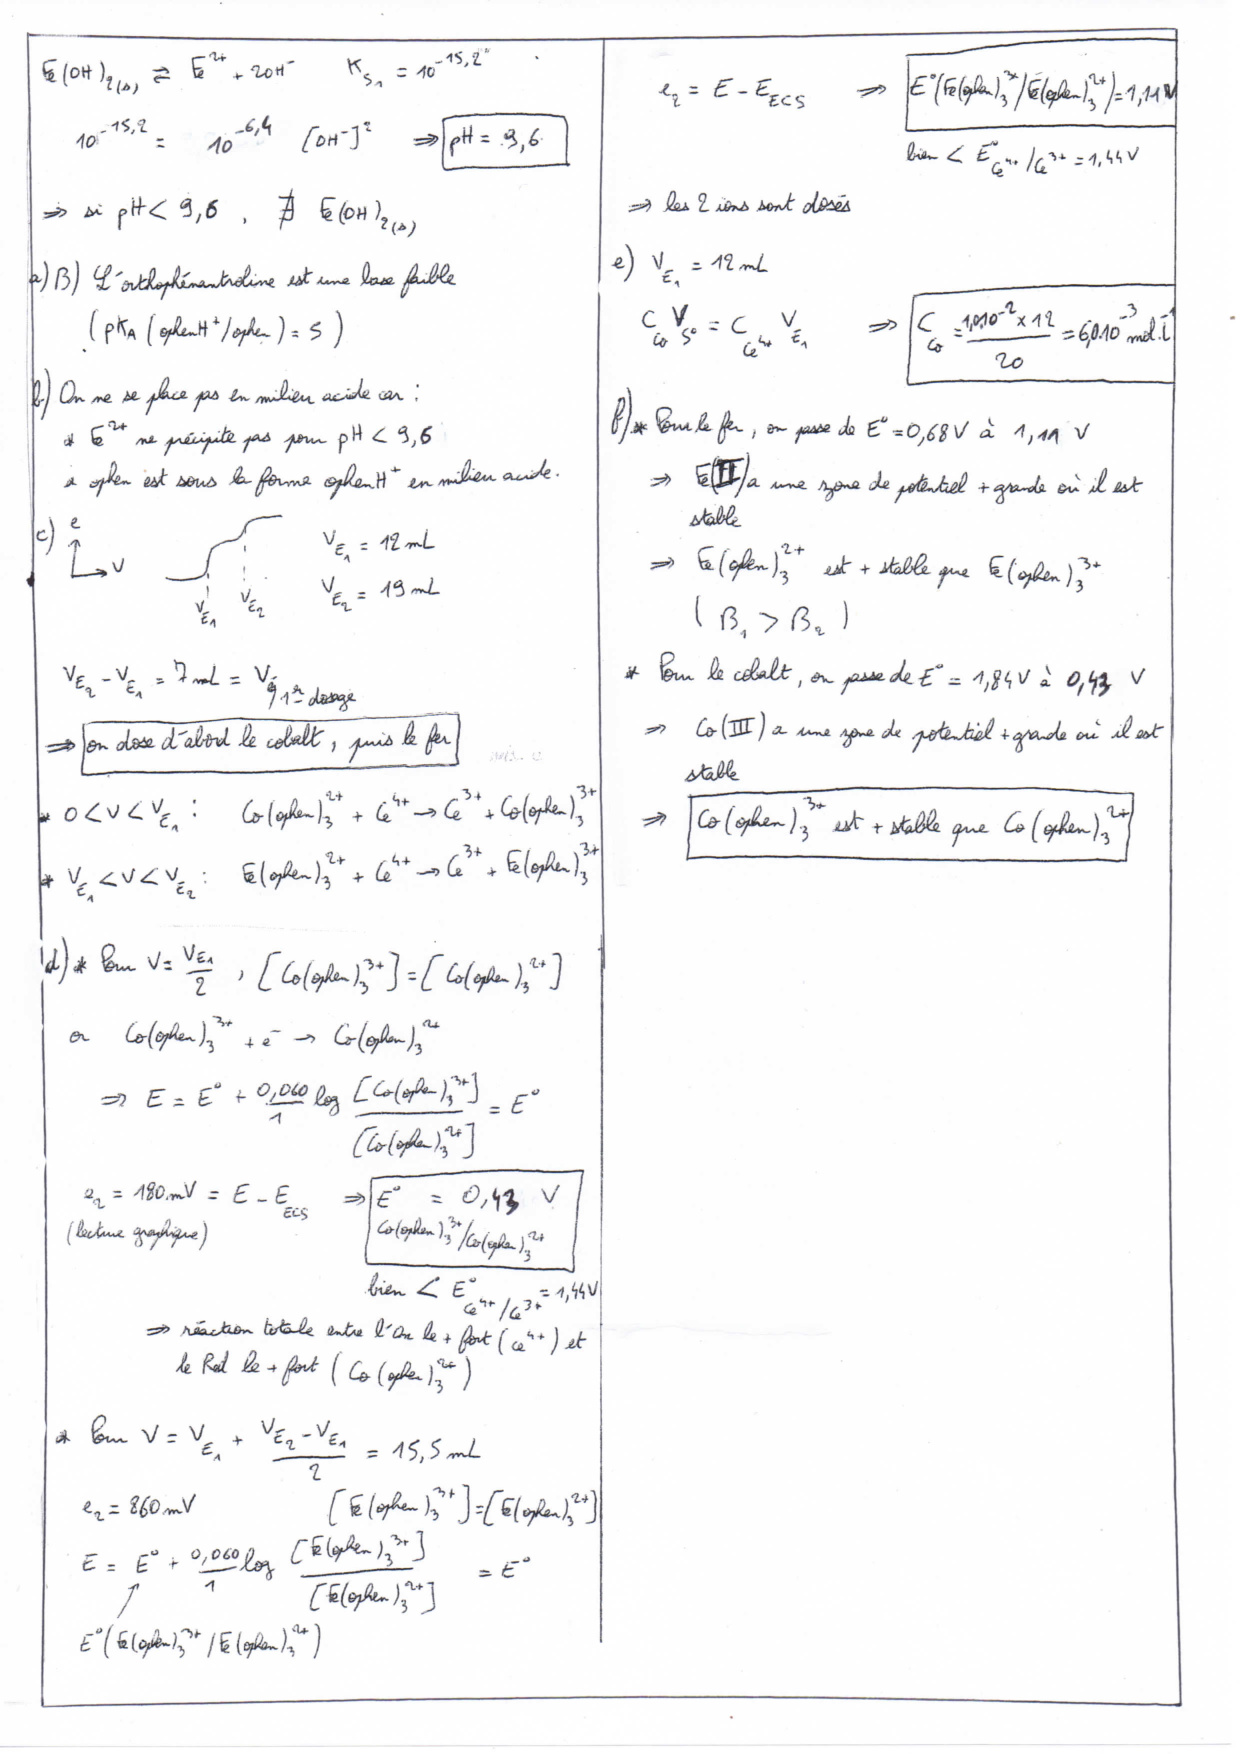 Fe(OH)₂(s) ⇌ Fe²⁺ + 2OH⁻   Ks₁ = 10^-15,2
10^-15,2 = 10^-6,4 [OH⁻]²  ⇒ pH = 9,6
⇒ si pH < 9,6, ∄ Fe(OH)₂(s)
a) B) L'orthophénantroline est une base faible
(pKA (ophenH⁺/ophen) = 5)
b) On ne se place pas en milieu acide car :
* Fe²⁺ ne précipite pas pour pH < 9,6
* ophen est sous la forme ophenH⁺ en milieu acide.
c) e
V
V_E1 V_E2
V_E1 = 12 mL
V_E2 = 19 mL
V_E2 - V_E1 = 7 mL = V_éq 1er dosage
⇒ on dose d'abord le cobalt, puis le fer
* 0 < V < V_E1 : Co(ophen)₃²⁺ + Ce⁴⁺ → Ce³⁺ + Co(ophen)₃³⁺
* V_E1 < V < V_E2 : Fe(ophen)₃²⁺ + Ce⁴⁺ → Ce³⁺ + Fe(ophen)₃³⁺
d) * Pour V = V_E1/2, [Co(ophen)₃³⁺] = [Co(ophen)₃²⁺]
or Co(ophen)₃³⁺ + e⁻ → Co(ophen)₃²⁺
⇒ E = E° + 0,060/1 log [Co(ophen)₃³⁺]/[Co(ophen)₃²⁺] = E°
e₂ = 180 mV = E - E_ECS ⇒ E° = 0,43 V
(lecture graphique) Co(ophen)₃³⁺/Co(ophen)₃²⁺
bien < E°_Ce⁴⁺/Ce³⁺ = 1,44V
⇒ réaction totale entre l'Ox le + fort (Ce⁴⁺) et
le Red le + fort (Co(ophen)₃²⁺)
* Pour V = V_E1 + (V_E2 - V_E1)/2 = 15,5 mL
e₂ = 860 mV   [Fe(ophen)₃³⁺] = [Fe(ophen)₃²⁺]
E = E° + 0,060/1 log [Fe(ophen)₃³⁺]/[Fe(ophen)₃²⁺] = E°
E°(Fe(ophen)₃³⁺/Fe(ophen)₃²⁺)
e₂ = E - E_ECS ⇒ E°(Fe(ophen)₃³⁺/Fe(ophen)₃²⁺) = 1,11 V
bien < E°_Ce⁴⁺/Ce³⁺ = 1,44V
⇒ les 2 ions sont dosés
e) V_E1 = 12 mL
C_Co V_S° = C_Ce⁴⁺ V_E1 ⇒ C_Co = 1,0.10⁻² × 12/20 = 6,0.10⁻³ mol.L⁻¹
f) * Pour le fer, on passe de E° = 0,68V à 1,11 V
⇒ Fe(II) a une zone de potentiel + grande où il est
stable
⇒ Fe(ophen)₃²⁺ est + stable que Fe(ophen)₃³⁺
(β₁ > β₂)
* Pour le cobalt, on passe de E° = 1,84V à 0,43 V
⇒ Co(III) a une zone de potentiel + grande où il est
stable
⇒ Co(ophen)₃³⁺ est + stable que Co(ophen)₃²⁺